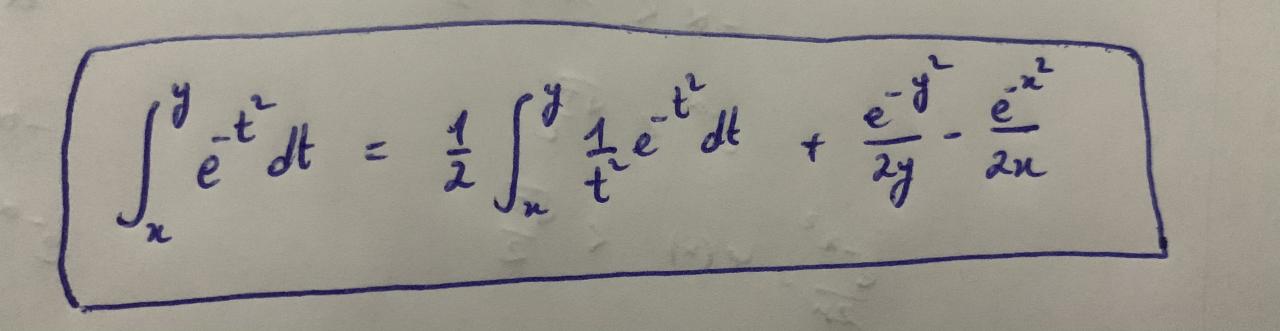 ∫_x^y e^{-t^2} dt = \frac{1}{2} ∫_x^y \frac{1}{t^2} e^{-t^2} dt + \frac{e^{-y^2}}{2y} - \frac{e^{-x^2}}{2x}